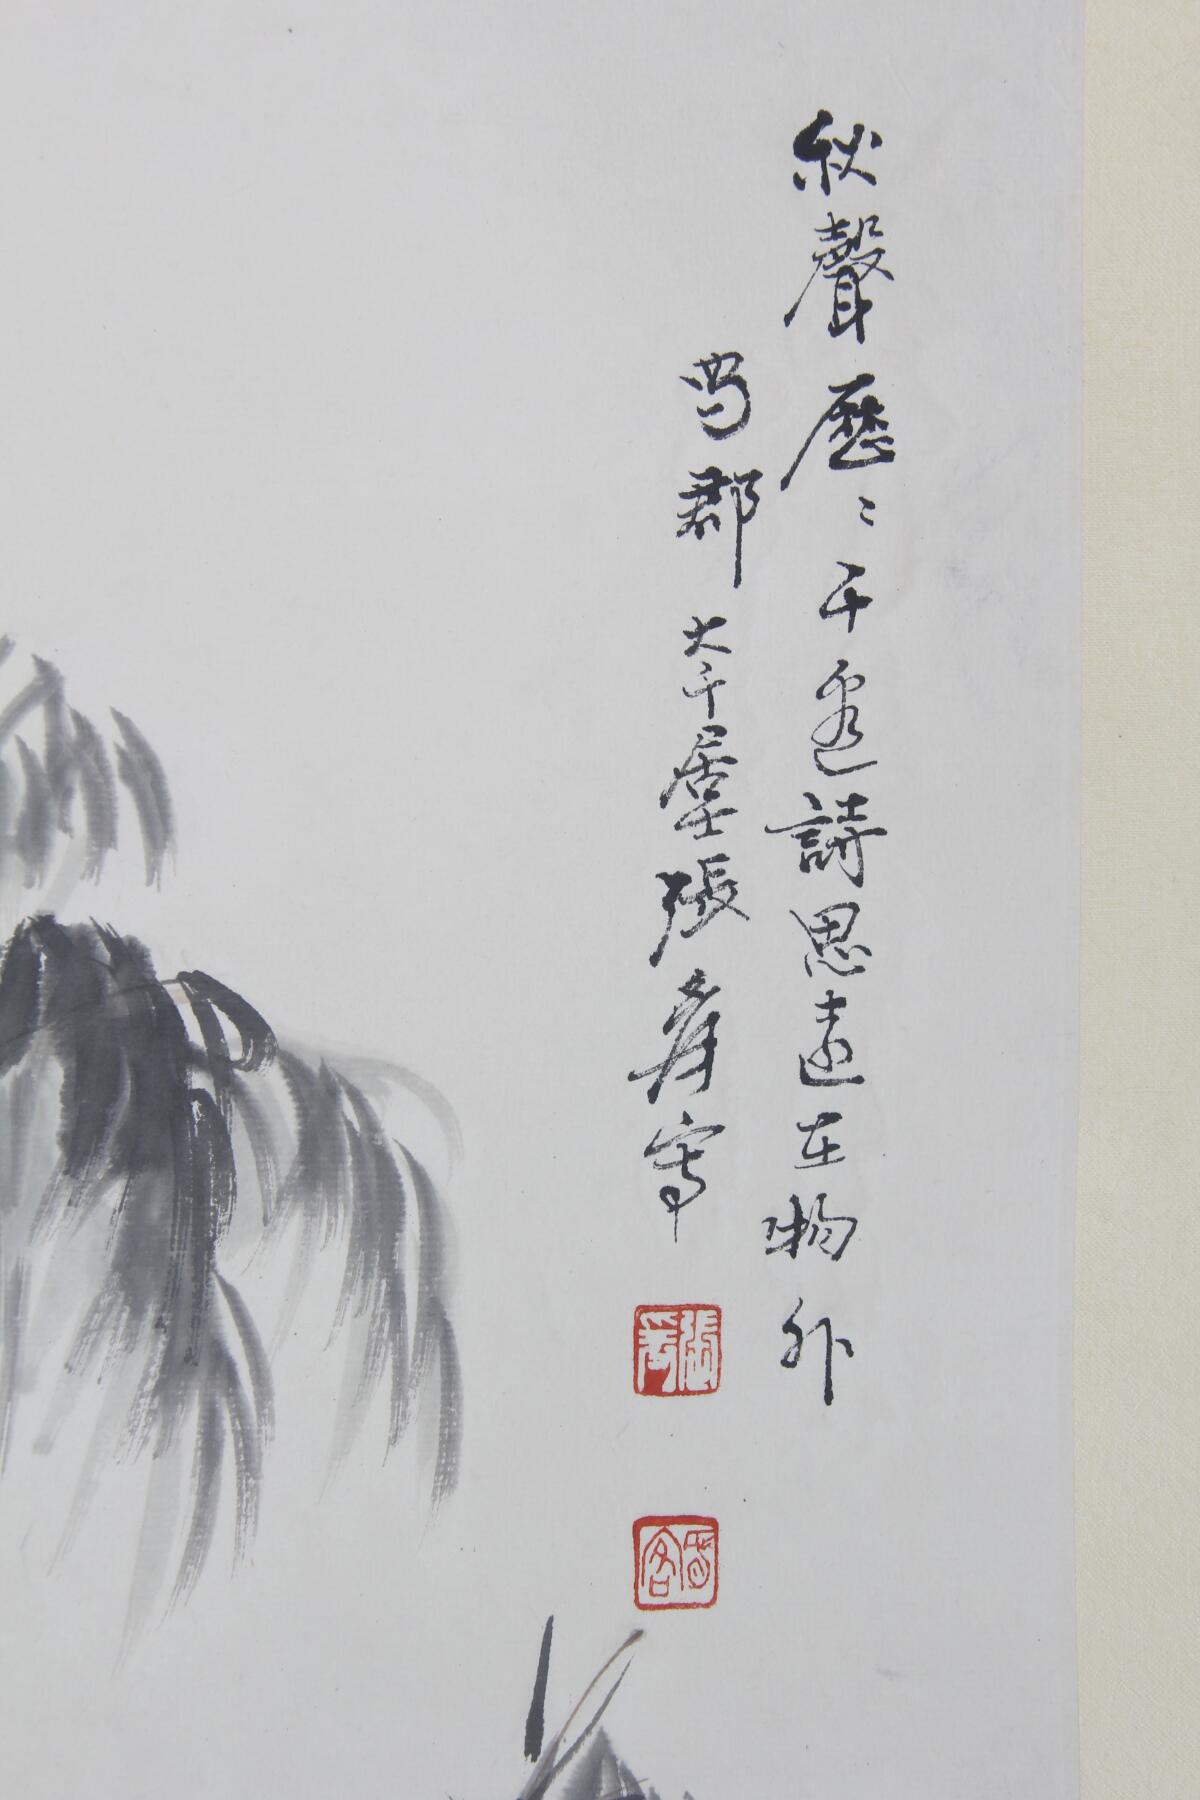 秋聲歷〻耳邊詩思遠在物外
蜀郡大千居士張爰寫
張爰
蜀客